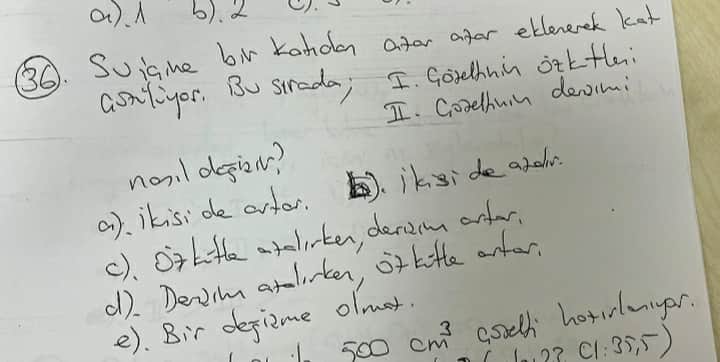 a). 1 b). 2 c).
36. Su içine bir katıdan azar azar eklenerek kat
I. Çözeltinin özkütlesi
çözülüyor. Bu sırada;
II. Çözeltinin derişimi
nasıl değişir?
a). ikisi de artar. b). ikisi de azalır.
c). Özkütle azalırken, derişim artar.
d). Derişim azalırken, özkütle artar.
e). Bir değişme olmaz.
500 cm³ çözelti hazırlanıyor.
Cl:35,5)